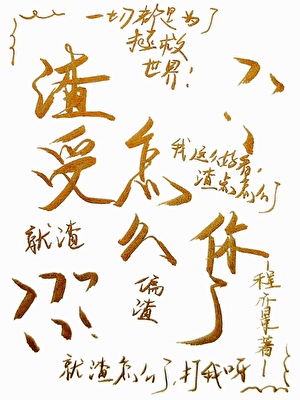 一切都是为了
拯救
世界！
渣
受
怎
么
你
了
我这么好看，
渣点怎么了
就渣
偏渣
程亦果著
就渣怎么了，打我呀